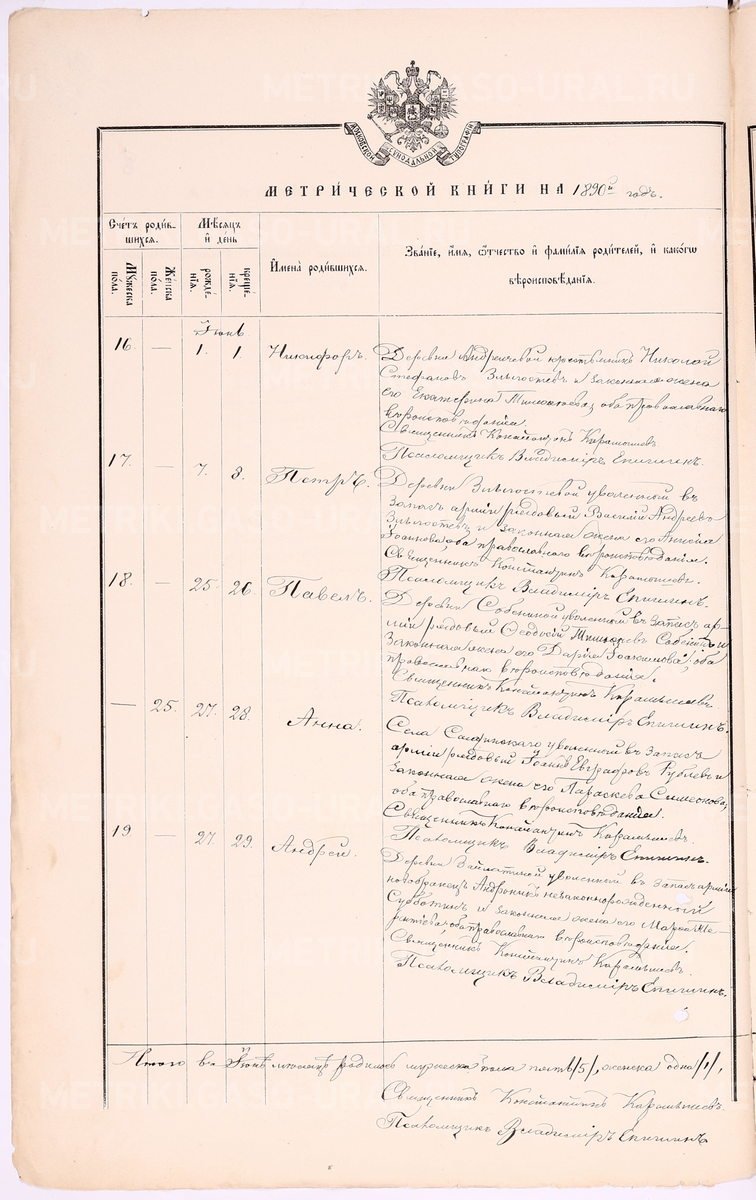 МОСКОВСКОЙ СѴНОДАЛЬНОЙ ТИПОГРАФІИ
МЕТРИЧЕСКОЙ КНИГИ НА 1890й годъ.
Счетъ родив-
шихся.
Мѣсяцъ
и день
Имена родившихся.
Званіе, имя, отчество и фамилія родителей, и какого
вѣроисповѣданія.
Мужеска
пола.
Женска
пола.
рожде-
нія.
креще-
нія.
Іюнь
16 — 1. 1. Никифоръ.
Деревни крестьянинъ Николай
Стефановъ и законная жена
его Екатерина обаправославнаго
вѣроисповѣданія.
Священникъ Константинъ Карамышевъ
Псаломщикъ Владиміръ Епишинъ.
17. — 7. 8. Петръ.
Деревни уволенный въ
запасъ арміи рядовый Василій Андреевъ
и законная жена его Анисія
Іоаннова оба православнаго вѣроисповѣданія.
Священникъ Константинъ Карамышевъ.
Псаломщикъ Владиміръ Епишинъ.
18 — 25. 26. Павелъ.
Деревни Собениной уволенный въ запасъ ар-
міи рядовый Ѳеодосій Собенинъ и
законная жена его Дарія оба
православнаго вѣроисповѣданія.
Священникъ Константинъ Карамышевъ.
Псаломщикъ Владиміръ Епишинъ.
— 25. 27. 28. Анна.
Села уволенный въ запасъ
арміи рядовый Іоаннъ Евграфовъ Рублевъ и
законная жена его Параскева Симеонова,
оба православнаго вѣроисповѣданія.
Священникъ Константинъ Карамышевъ.
Псаломщикъ Владиміръ Епишинъ.
19 — 27. 29. Андрей.
Деревни уволенный въ запасъ арміи
Андроникъ незаконнорожденный
Субботинъ и законная жена его
оба православнаго вѣроисповѣданія.
Священникъ Константинъ Карамышевъ.
Псаломщикъ Владиміръ Епишинъ.
Итого въ Іюнѣ мѣсяцѣ родилось мужеска пола пять /5/, женска одна /1/,
Священникъ Константинъ Карамышевъ.
Псаломщикъ Владиміръ Епишинъ